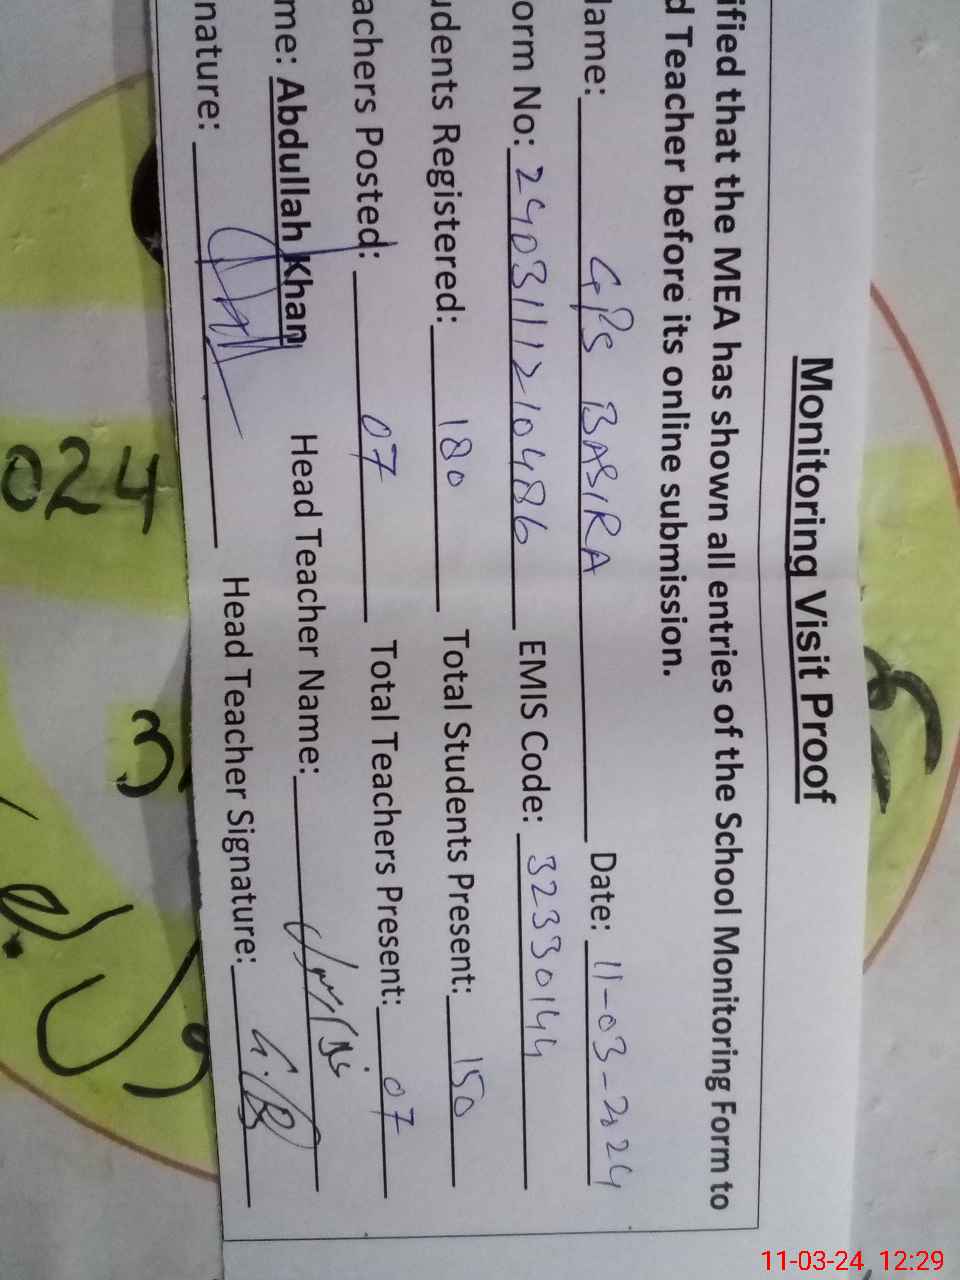 Monitoring Visit Proof
ified that the MEA has shown all entries of the School Monitoring Form to
d Teacher before its online submission.
lame: GPS BASIRA Date: 11-03-2024
orm No: 2403111210486 EMIS Code: 32330144
udents Registered: 180 Total Students Present: 150
achers Posted: 07 Total Teachers Present: 07
me: Abdullah Khan Head Teacher Name:
nature: Head Teacher Signature:
024
3
11-03-24 12:29